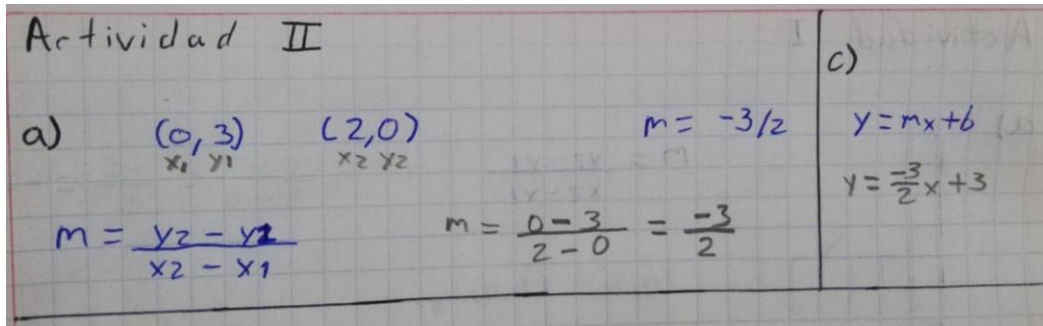 Actividad II
a) (0, 3) (2,0) m = -3/2
x1 y1 x2 y2
m = y2 - y1 / x2 - x1
m = 0 - 3 / 2 - 0 = -3 / 2
c)
y = mx + b
y = -3/2 x + 3